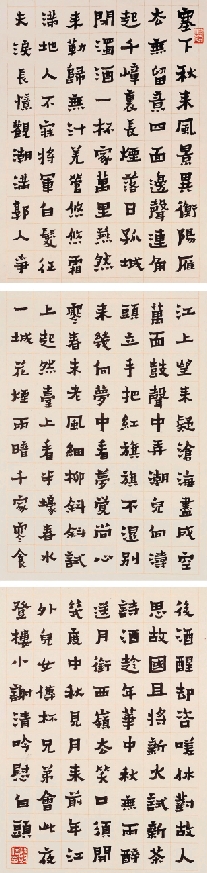 塞下秋来風景異衡陽雁
去無留意四面邊聲連角
起千嶂裏長煙落日孤城
閉濁酒一杯家萬里燕然
未勒歸無計羌管悠悠霜
滿地人不寐將軍白髮征
夫淚長憶觀潮滿郭人争
江上望来疑滄海盡成空
萬面鼓聲中弄潮兒向濤
頭立手把紅旗旗不濕別
来幾向夢中看夢覺尚心
寒春未老風細柳斜斜試
上超然臺上看半壕春水
一城花煙雨暗千家寒食
後酒醒却咨嗟休對故人
思故國且將新火試新茶
詩酒趁年華中秋無雨醉
送月銜西嶺去笑口須開
幾度中秋見月来前年江
外兒女傳杯兄弟會此夜
登樓小謝清吟慰白頭